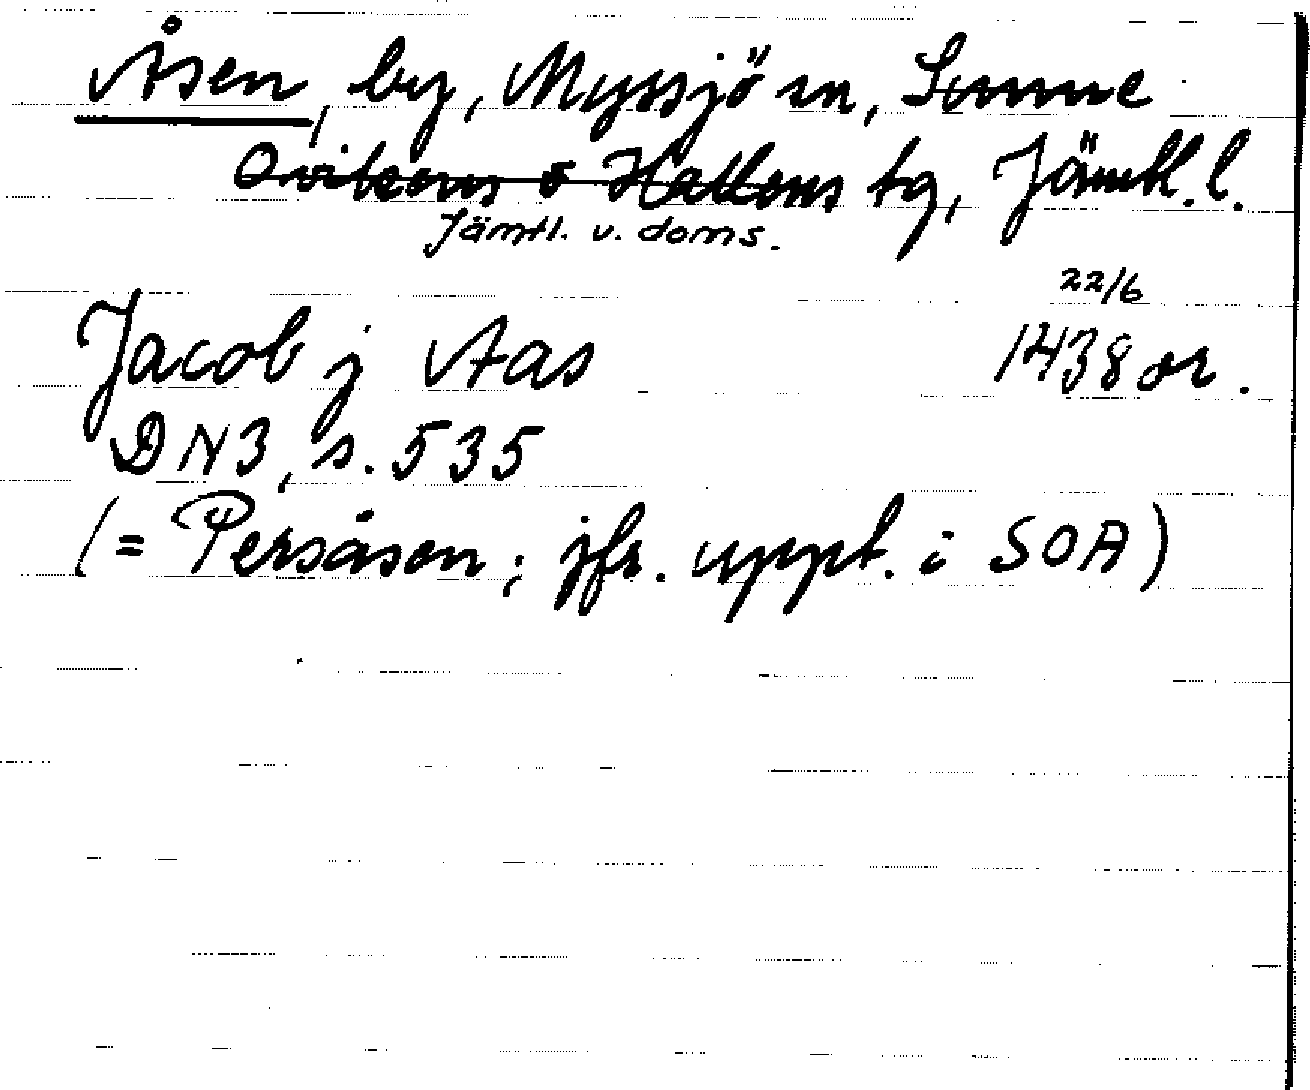 Åsen, by, Myssjö sn, Sunne
Ovikens o Hallens tg, Jämtl. l.
Jämtl. v. doms.
22/6
Jacob j Aas 1438 or.
DN 3, s. 535
(= Persåsen; jfr. uppt. i SOA)